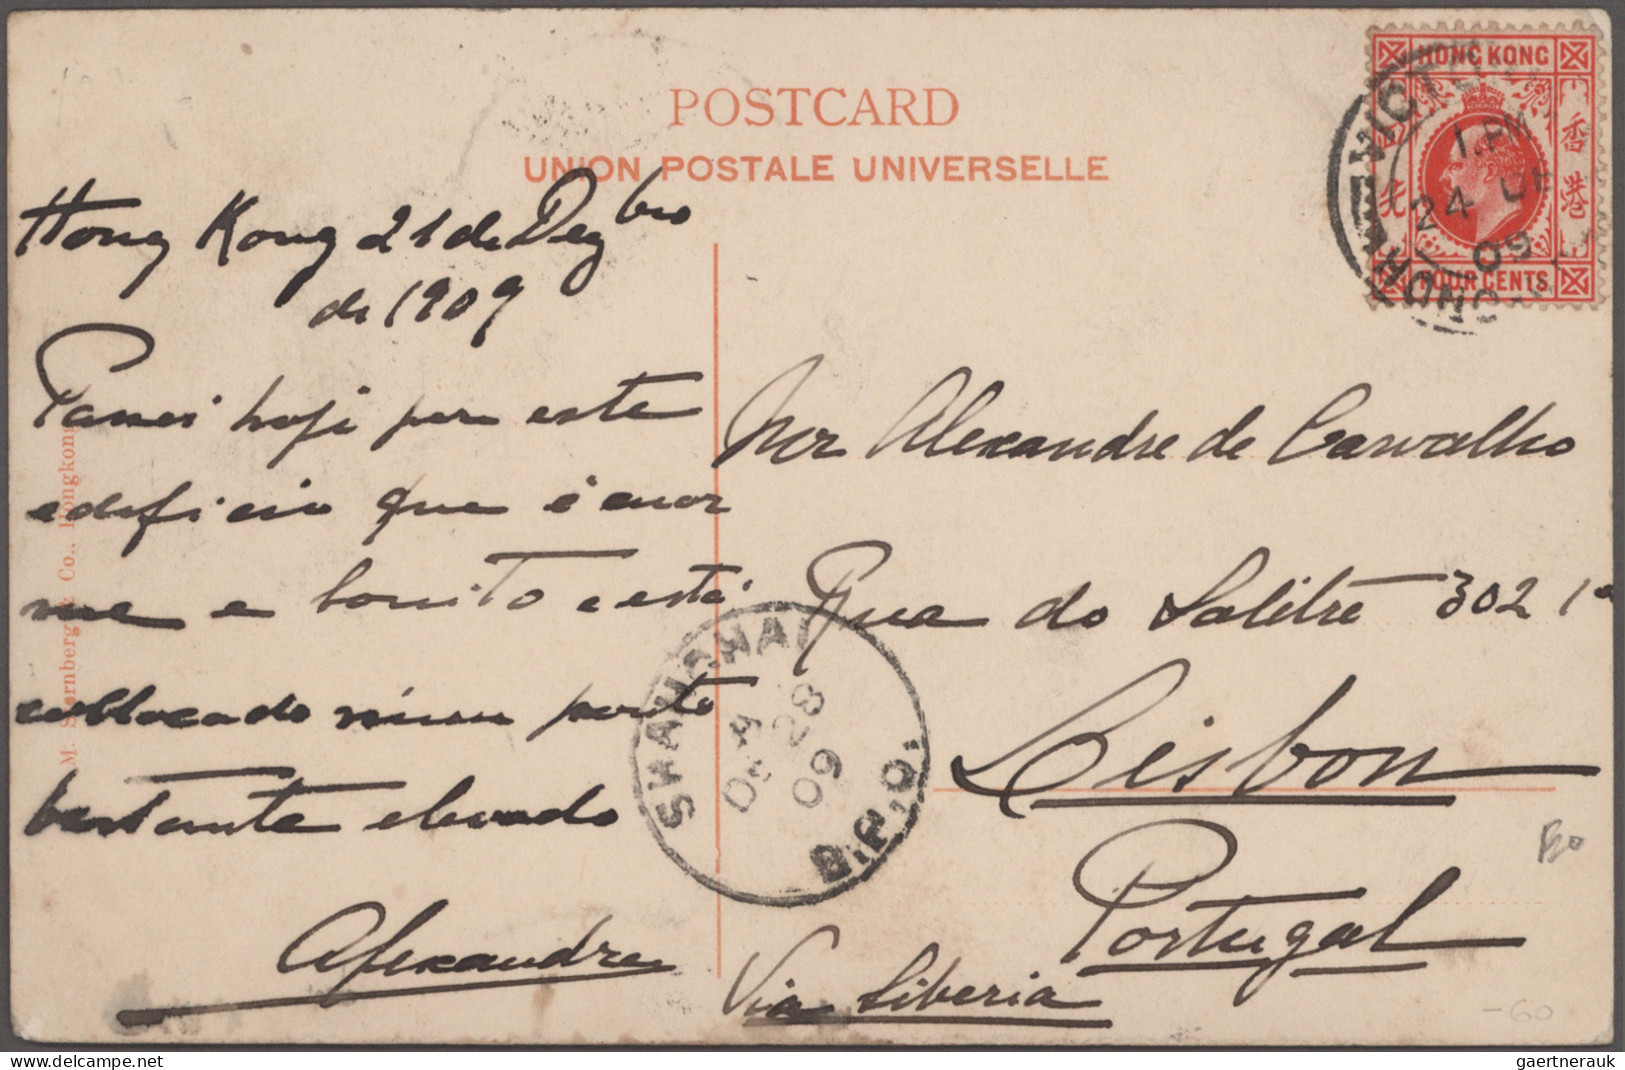 POSTCARD
UNION POSTALE UNIVERSELLE
HONG KONG
香港
FOUR CENTS
VICTORIA
1 PM
24 DE
09
HONG KONG
Hong Kong 21 de Dezbro
de 1909
Passei hoje por este
edificio que é enor
me e bonito e está
collocado n'um ponto
bastante elevado
Alexandre
M. Sternberg & Co., Hongkong
SHANGHAI
DE 28
09
B.P.O.
Alexandre de Carvalho
Rua do Salitre 302 1º
Lisbon
Portugal
Via Siberia
-60
gaertnerauk
delcampe.net